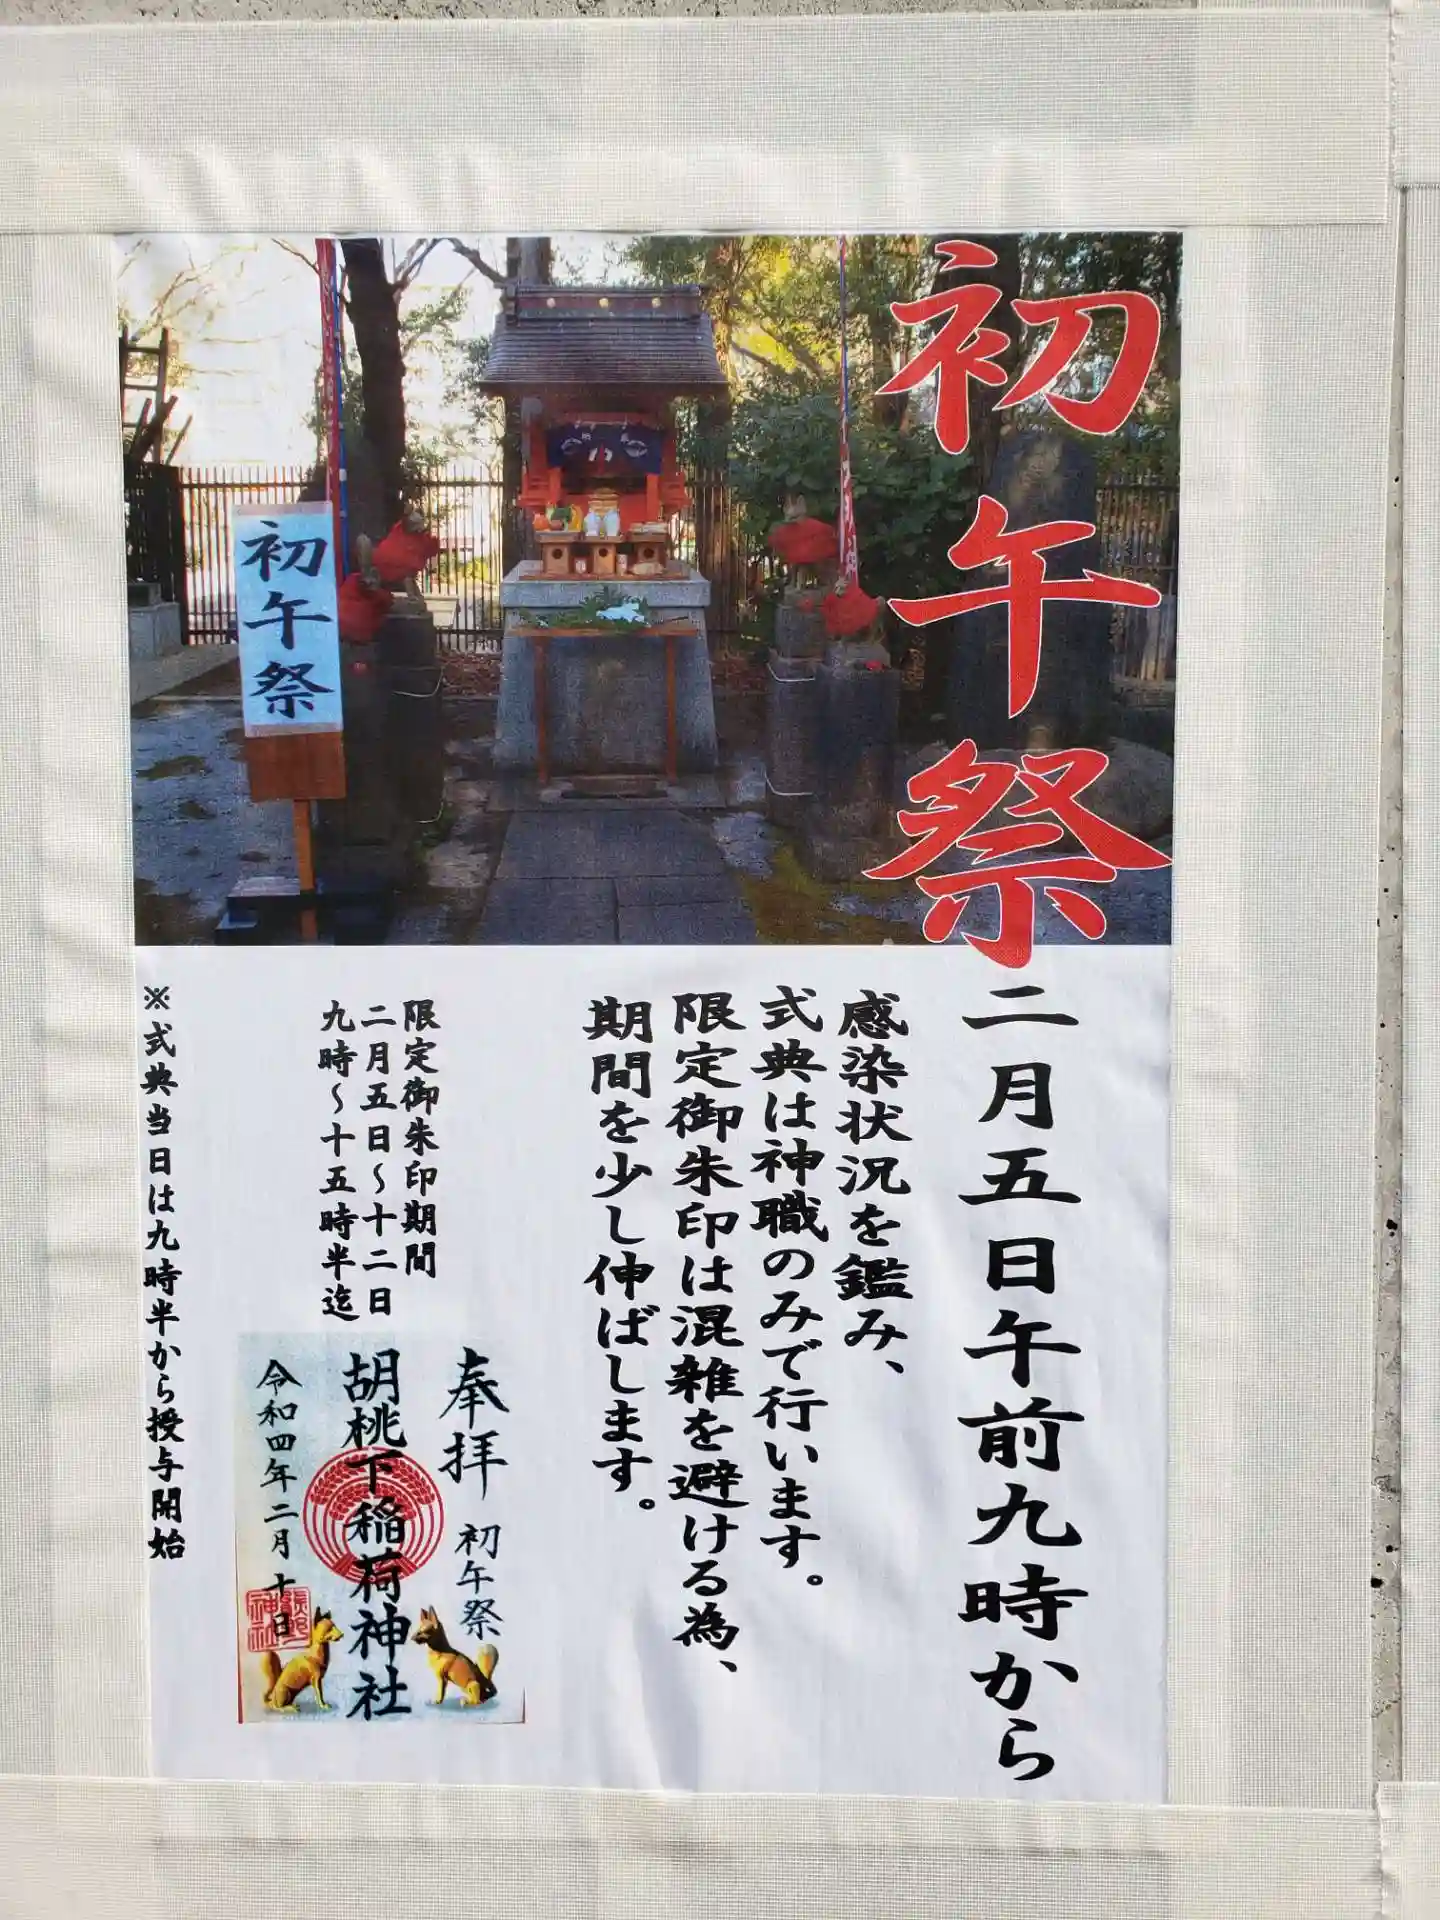 初午祭
初午祭
二月五日午前九時から
感染状況を鑑み、
式典は神職のみで行います。
限定御朱印は混雑を避ける為、
期間を少し伸ばします。
限定御朱印期間
二月五日〜十二日
九時〜十五時半迄
奉拝 初午祭
胡桃下稲荷神社
令和四年二月十日
※式典当日は九時半から授与開始